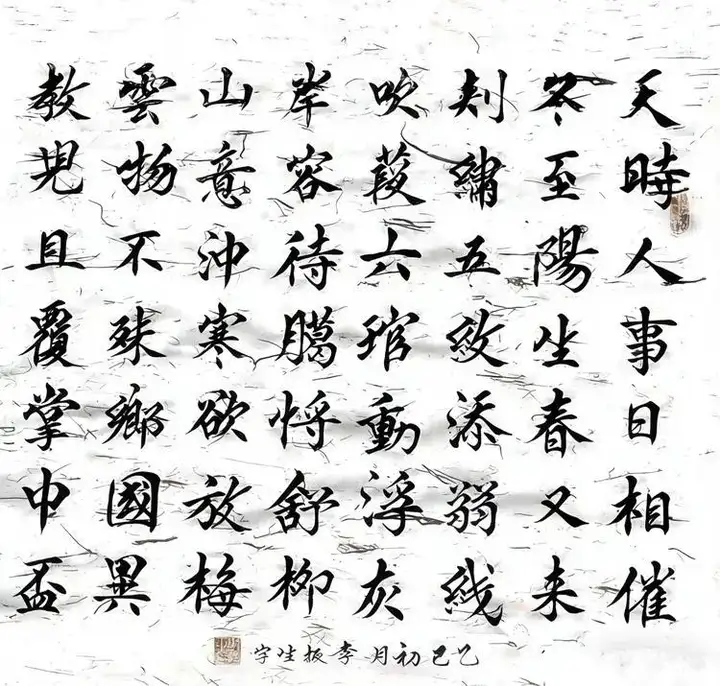 天時人事日相催
冬至陽生春又来
刺繡五紋添弱线
吹葭六琯動浮灰
岸容待臈将舒柳
山意沖寒欲放梅
雲物不殊鄉國異
教児且覆掌中盃
乙巳初月李振生字